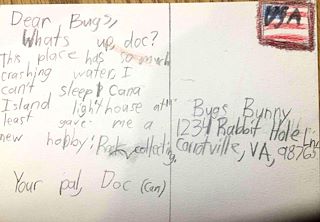 Dear Bugs,
What's up doc?
This place has so much
crashing water, I
can't sleep! Cana
Island lighthouse at
least gave me a
new hobby: Rock collecting
Your pal, Doc (Can)
USA
Bugs Bunny
1234 Rabbit Hole Ln
Carrotville, VA, 98765